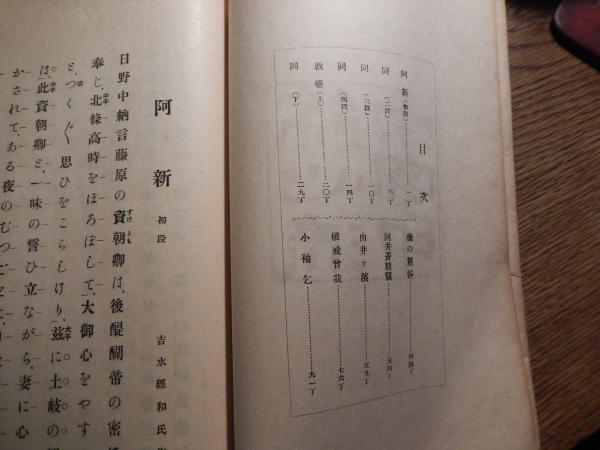 目次
阿新(初段)…………一丁
同(二段)…………六丁
同(三段)…………一〇丁
同(四段)…………一四丁
敦盛(上)…………二〇丁
同(下)…………二九丁
後の熊谷…………四四丁
河井蒼龍窟…………五四丁
由井ヶ濱…………五九丁
破戒曾我…………七六丁
小袖乞…………九一丁
阿新 初段
吉水經和氏
日野中納言藤原の資朝卿は、後醍醐帝の密
すけとも
奉じ、北條高時をほろぼして、大御心をやす
と、つくぐ思ひをこらしけり、茲に土岐の
は、此資朝卿と、一味の誓ひ立ながら、妻に心
かされて、ある夜のむつごとに